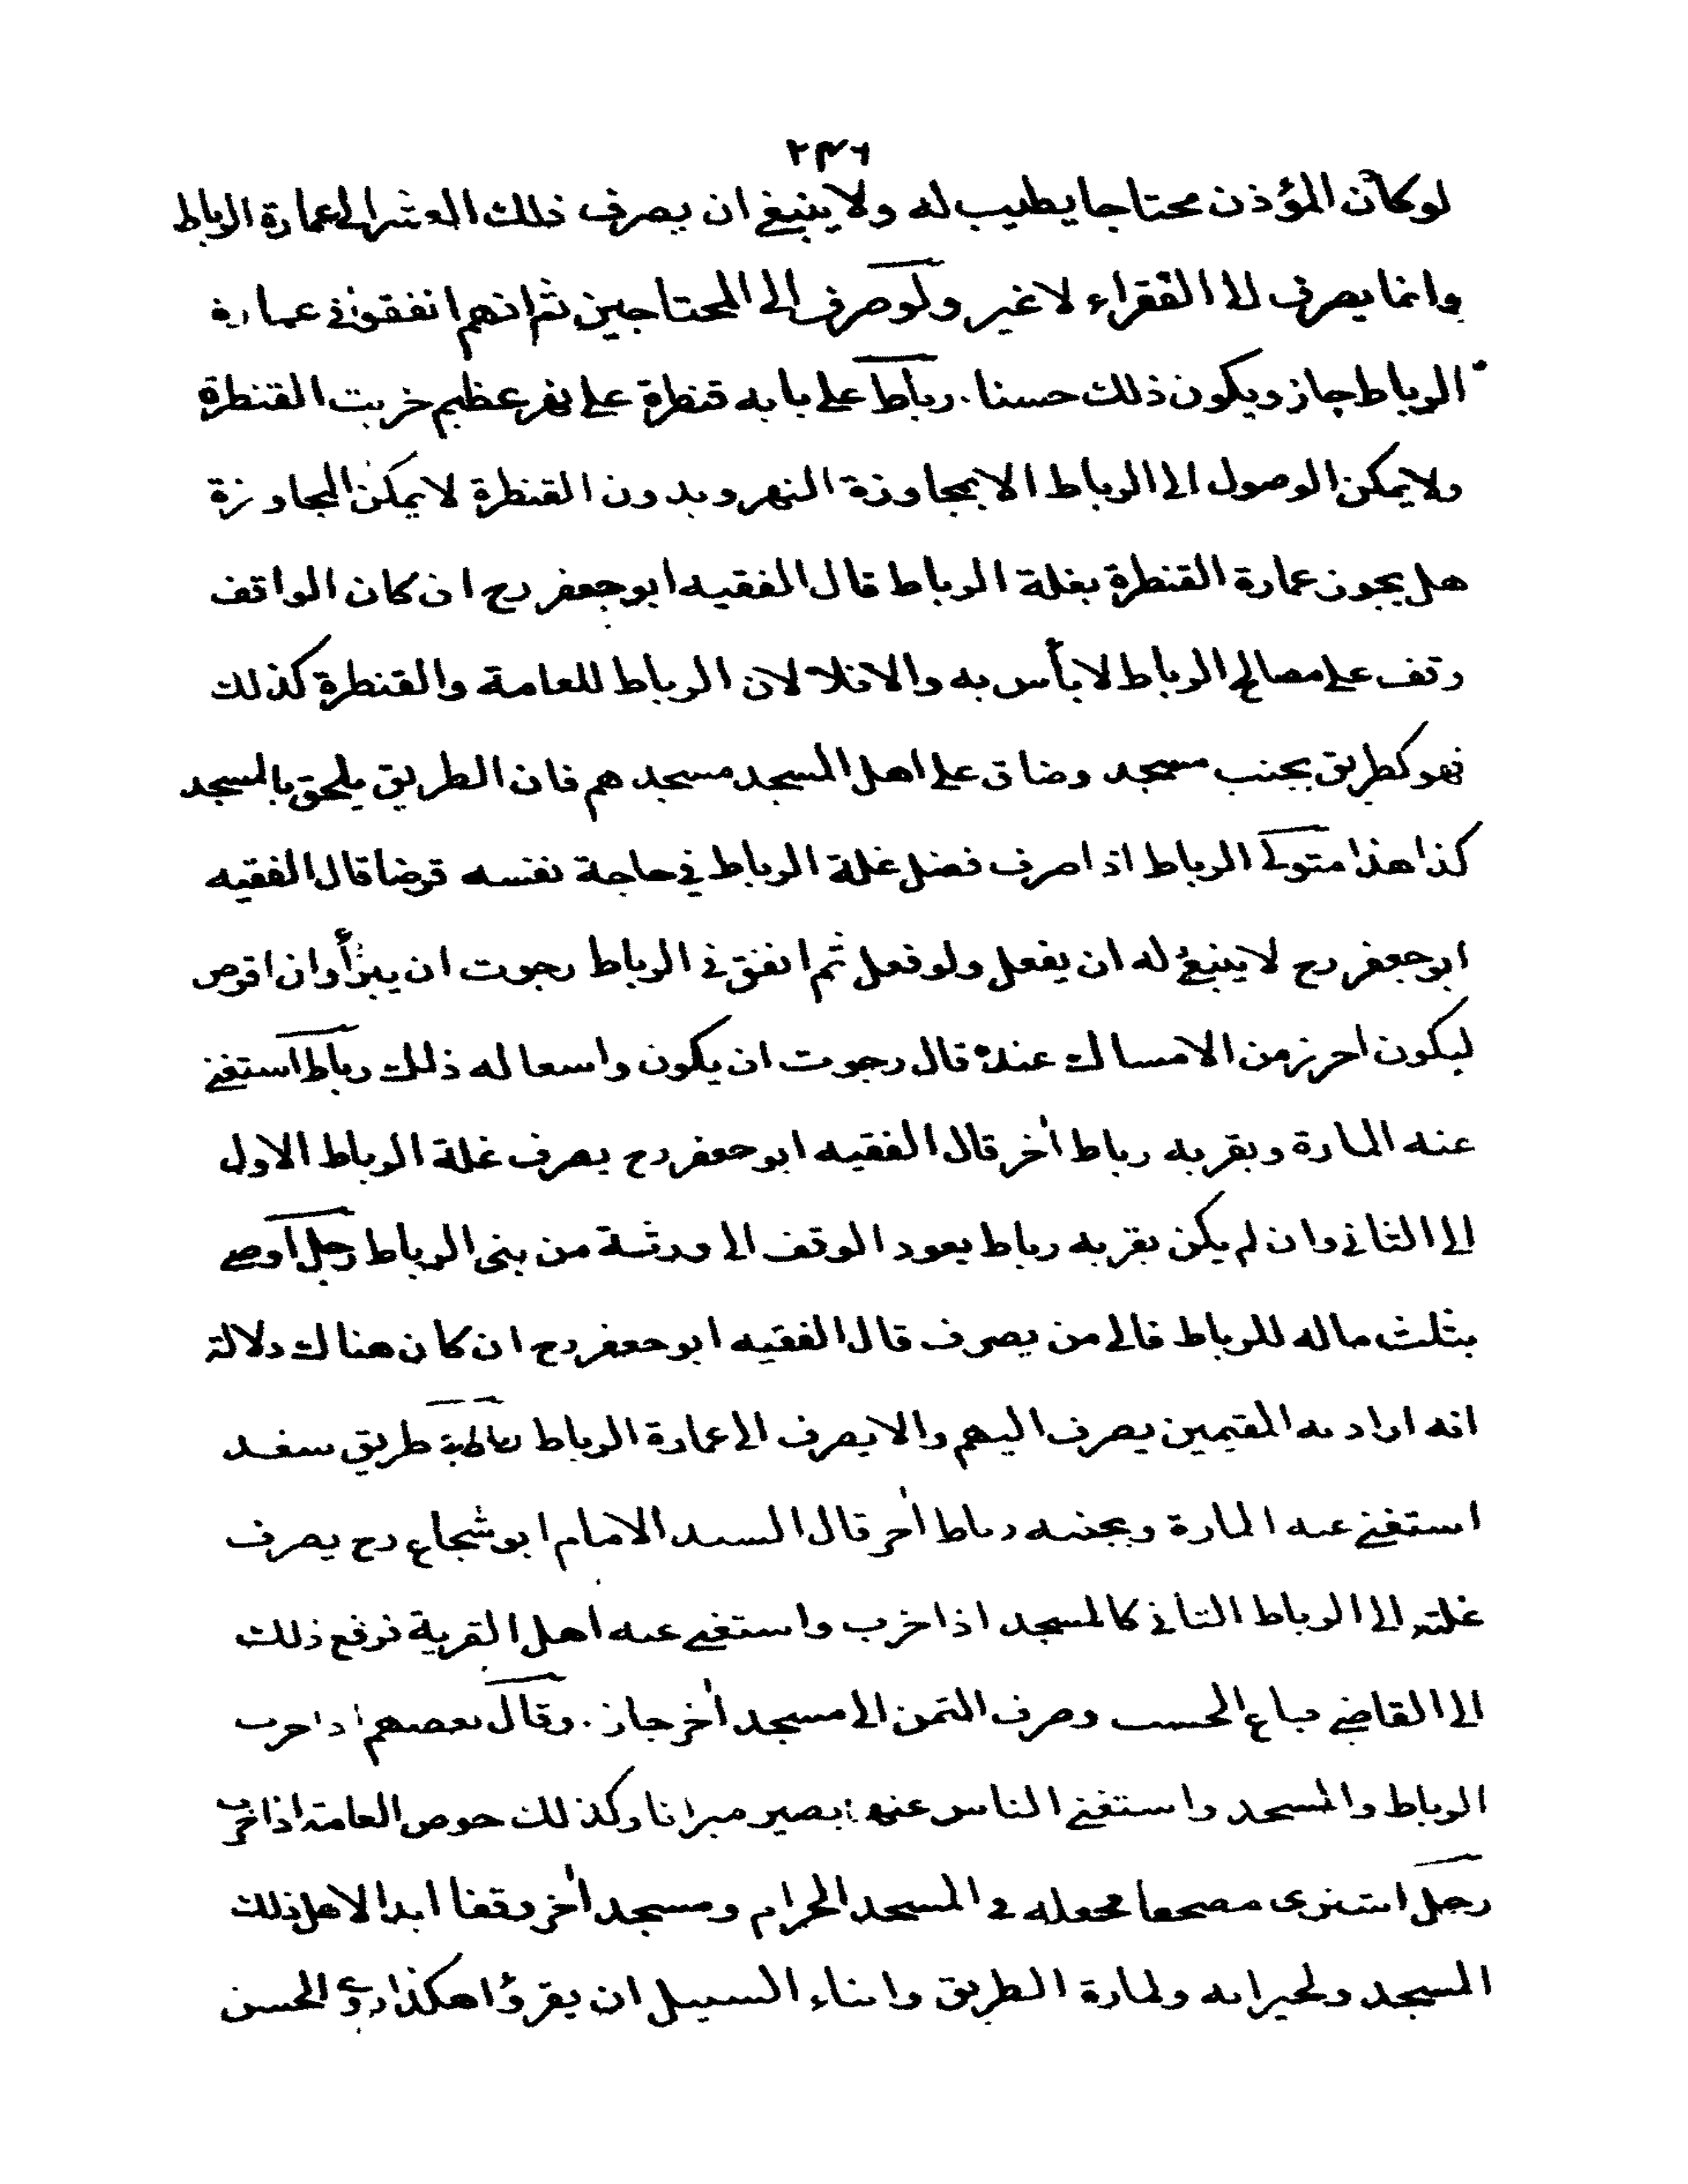 ٢٤٦
لو كان المؤذن محتاجا يطيب له ولا ينبغي ان يصرف ذلك العشر الى عمارة الرباط
وانما يصرف الى الفقراء لا غير ولو صرف الى المحتاجين ثم انهم انفقوا في عمارة
الرباط جاز ويكون ذلك حسنا . رباط على بابه قنطرة على نهر عظيم خربت القنطرة
ولا يمكن الوصول الى الرباط الا بمجاوزة النهر وبدون القنطرة لا يمكن المجاوزة
هل يجوز عمارة القنطرة بغلة الرباط قال الفقيه ابو جعفر رح ان كان الواقف
وقف على مصالح الرباط لا بأس به والا فلا لان الرباط للعامة والقنطرة كذلك
فهو كطريق بجنب مسجد وضاق على اهل المسجد مسجدهم فان الطريق يلحق بالمسجد
كذا هذا متولى الرباط اذا صرف فضل غلة الرباط في حاجة نفسه قرضا قال الفقيه
ابو جعفر رح لا ينبغي له ان يفعل ولو فعل ثم انفق في الرباط رجوت ان يبرأ وان اقرض
ليكون احرز من الامساك عنده قال رجوت ان يكون واسعا له ذلك رباط استغنى
عنه المارة وبقربه رباط اخر قال الفقيه ابو جعفر رح يصرف غلة الرباط الاول
الى الثاني وان لم يكن بقربه رباط يعود الوقف الى ورثة من بنى الرباط رجل اوصى
بثلث ماله للرباط فالى من يصرف قال الفقيه ابو جعفر رح ان كان هناك دلالة
انه اراد به المقيمين يصرف اليهم والا يصرف الى عمارة الرباط طريق سغد
استغنى عنه المارة وبجنبه رباط اخر قال السيد الامام ابو شجاع رح يصرف
غلته الى الرباط الثاني كالمسجد اذا خرب واستغنى عنه اهل القرية فرفع ذلك
الى القاضي فباع الخشب وصرف الثمن الى مسجد اخر جاز . وقال بعضهم اذا خرب
الرباط والمسجد واستغنى الناس عنهما يصير ميراثا وكذلك حوض العامة اذا خرب
رجل اشترى مصحفا فجعله في المسجد الحرام ومسجد اخر وقفا ابدا لاهل ذلك
المسجد ولجيرانه ولمارة الطريق وابناء السبيل ان يقرؤا هكذا روى الحسن